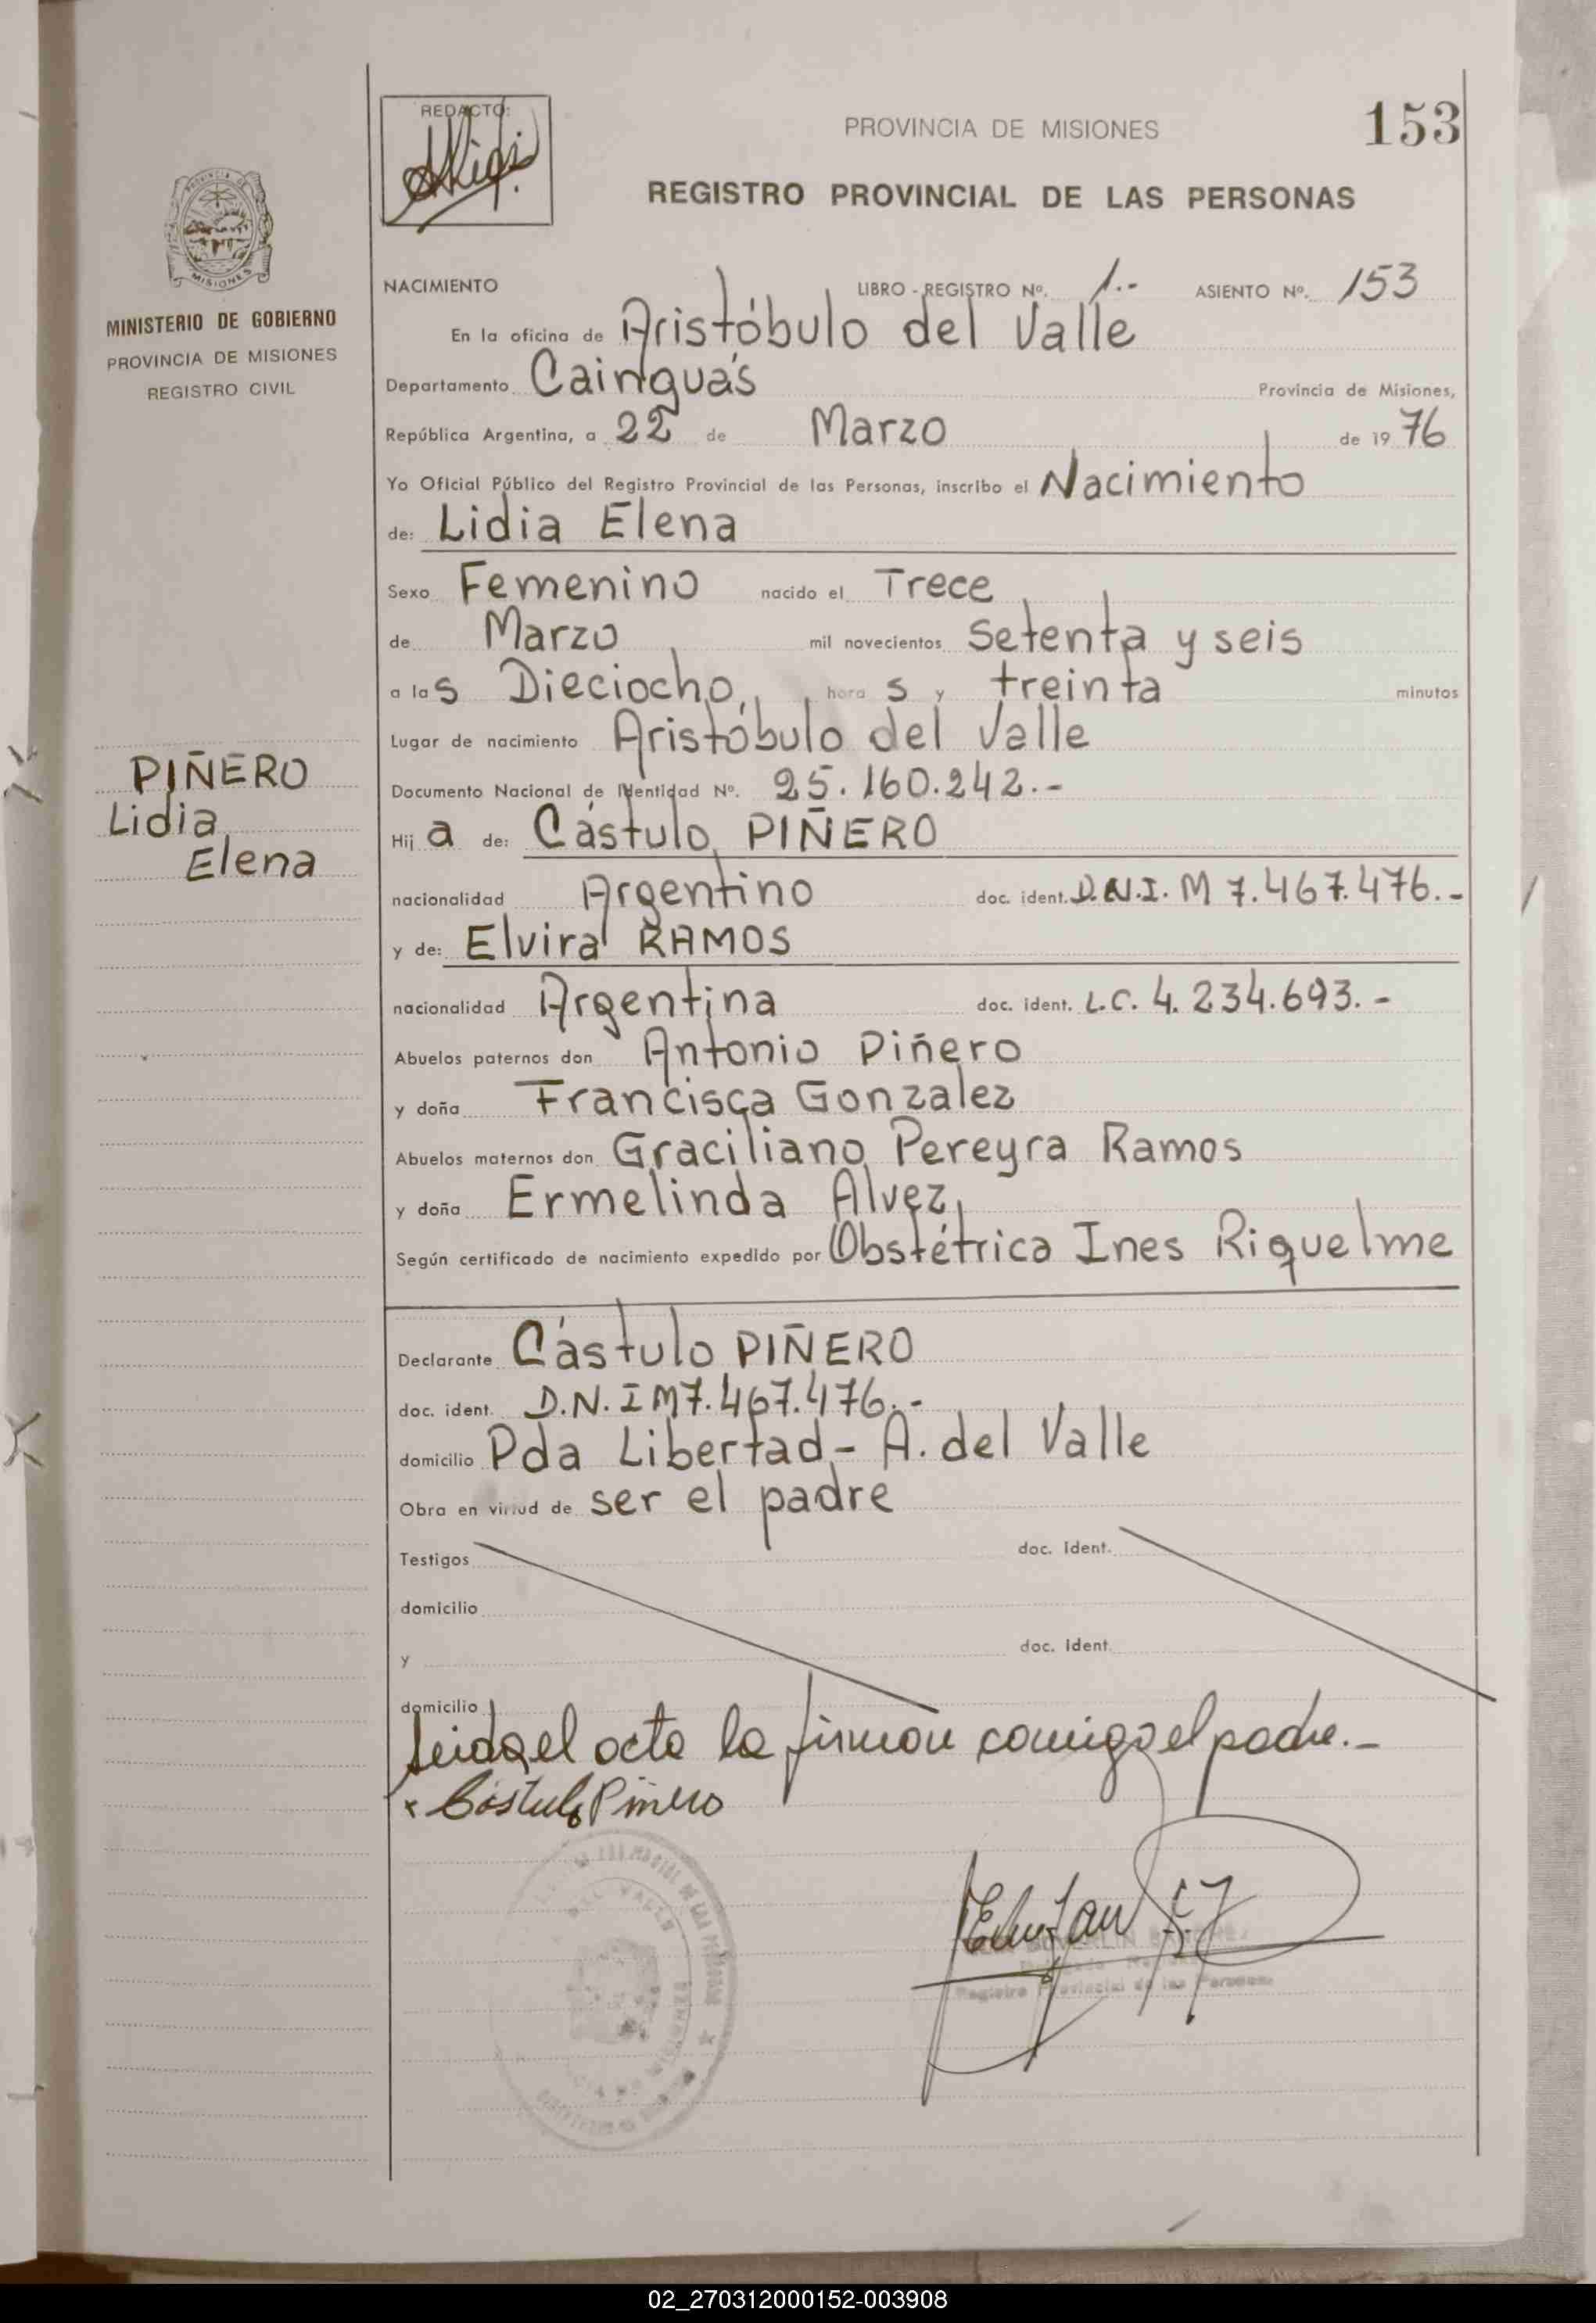 REDACTO:
PROVINCIA DE MISIONES
153
REGISTRO PROVINCIAL DE LAS PERSONAS
MISIONES
MINISTERIO DE GOBIERNO
PROVINCIA DE MISIONES
REGISTRO CIVIL
NACIMIENTO LIBRO - REGISTRO Nº. 1.- ASIENTO Nº. 153
En la oficina de Aristóbulo del Valle
Departamento Cainguás Provincia de Misiones,
República Argentina, a 22 de Marzo de 1976
Yo Oficial Público del Registro Provincial de las Personas, inscribo el Nacimiento
de: Lidia Elena
Sexo Femenino nacido el Trece
de Marzo mil novecientos Setenta y seis
a las Dieciocho, horas y treinta minutos
Lugar de nacimiento Aristóbulo del Valle
Documento Nacional de Identidad Nº. 25.160.242.-
PIÑERO
Lidia
Elena
Hija de: Cástulo PIÑERO
nacionalidad Argentino doc. ident. D.N.I. M 7.467.476.-
y de: Elvira RAMOS
nacionalidad Argentina doc. ident. L.C. 4.234.693.-
Abuelos paternos don Antonio Piñero
y doña Francisca Gonzalez
Abuelos maternos don Graciliano Pereyra Ramos
y doña Ermelinda Alvez
Según certificado de nacimiento expedido por Obstétrica Ines Riquelme
Declarante Cástulo PIÑERO
doc. ident. D.N.I M7.467.476.-
domicilio Pda Libertad - A. del Valle
Obra en virtud de ser el padre
Testigos doc. ident.
domicilio
y doc. ident.
domicilio
Leida el acta la firman comigo el padre.-
x Cástulo Piñero
Registro Provincial de las Personas
02_270312000152-003908